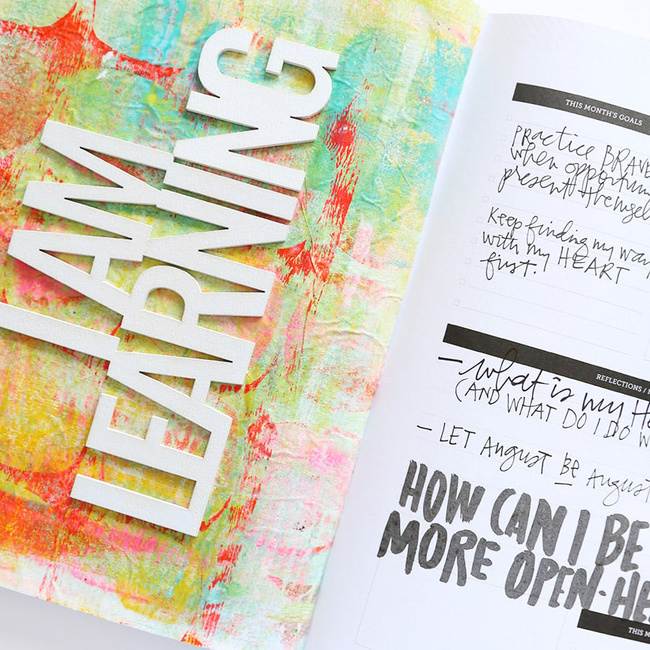 I AM
LEARNING
THIS MONTH'S GOALS
PRACTICE BRAVE
when opportun
present themsel
Keep finding my way
with my HEART
first.
REFLECTIONS /
- what is my H
(AND WHAT DO I DO W
- LET AUGUST BE AUGUST
HOW CAN I BE
MORE OPEN-HE
THIS M